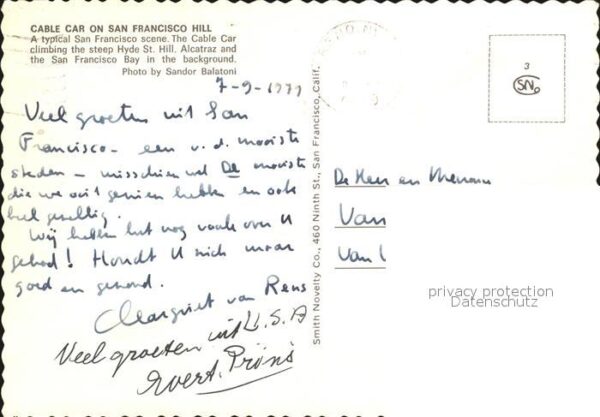 CABLE CAR ON SAN FRANCISCO HILL
A typical San Francisco scene. The Cable Car
climbing the steep Hyde St. Hill. Alcatraz and
the San Francisco Bay in the background.
Photo by Sandor Balatoni
7-9-1979
Veel groeten uit San
Francisco - een v. d. mooiste
steden - misschien wel De mooiste
die we ooit gezien hebben en ook
heel gezellig.
Wij hebben het nog vaak over U
gehad! Houdt U zich maar
goed en gezond.
Margriet van Rens
Veel groeten uit U.S.A
Evert.
Smith Novelty Co., 460 Ninth St., San Francisco, Calif.
3
SN
De Heer en Mevrouw
Van
Van
privacy protection
Datenschutz